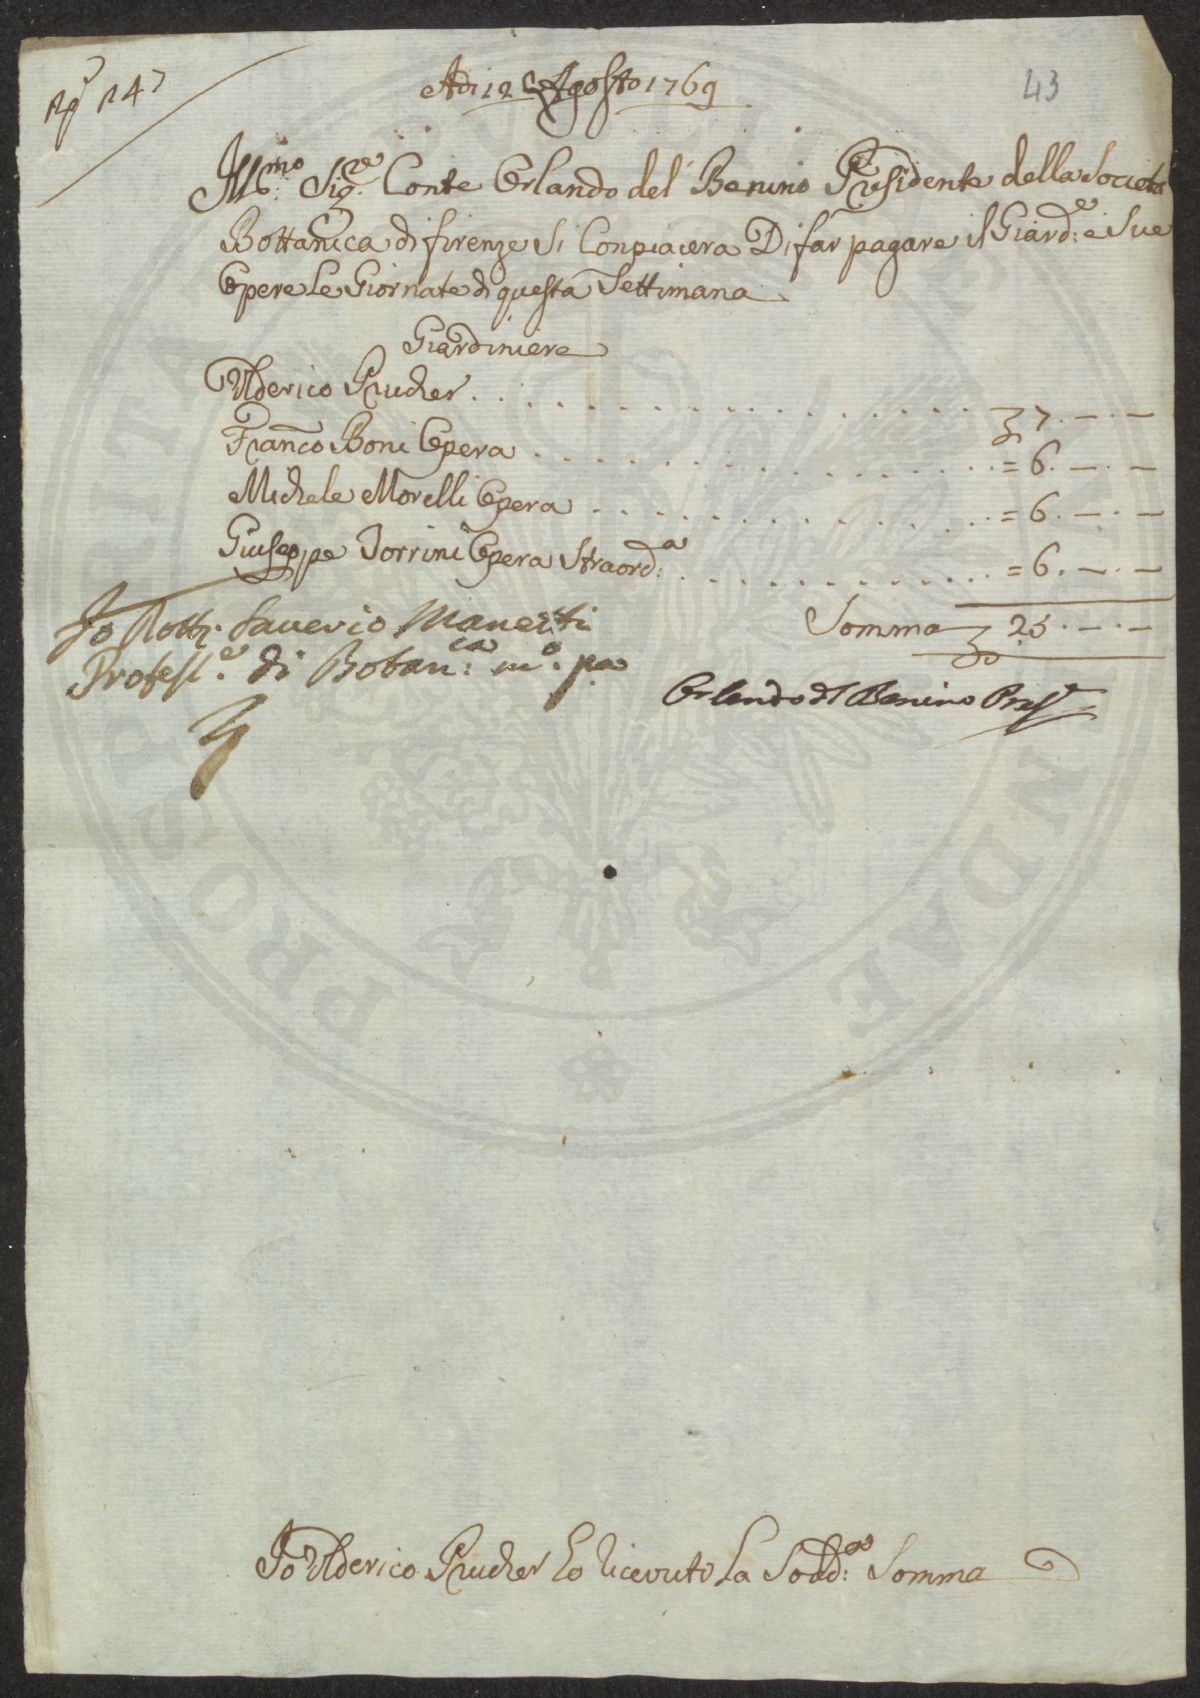 43
Adi 12 Agosto 1769
Ill:mo Sig:re Conte Orlando del Benino Presidente della Società
Bottanica di firenze Si Conpiacera Di far pagare il Giard:e e Sue
Opere Le Giornate di questa Settimana
Giardiniere
Ulderico Prucher . . . . 7. — . —
Franco Boni Opera . . . . = 6. — . —
Michele Morelli Opera . . . . = 6. — . —
Giuseppe Torrini Opera Straord:a . . . . = 6. — . —
Somma 25 . — . —
Io Dott. Saverio Manetti
Profess.e di Botan:ca m:o pa
Orlando del Benino Presid
Io Ulderico Prucher ho ricevuto La Sodd:a Somma
PROSPERITATI PUBLICAE AUGENDAE